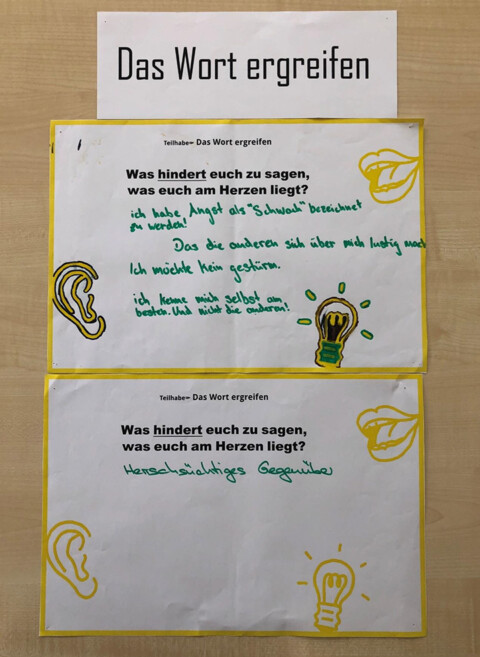 Das Wort ergreifen
Teilhabe= Das Wort ergreifen
Was hindert euch zu sagen,
was euch am Herzen liegt?
ich habe Angst als "Schwach" bezeichnet
zu werden!
Das die anderen sich über mich lustig mach
Ich möchte kein gestürm.
ich kenne mich selbst am
besten. Und nicht die anderen!
Teilhabe= Das Wort ergreifen
Was hindert euch zu sagen,
was euch am Herzen liegt?
Herrschsüchtiges Gegenüber